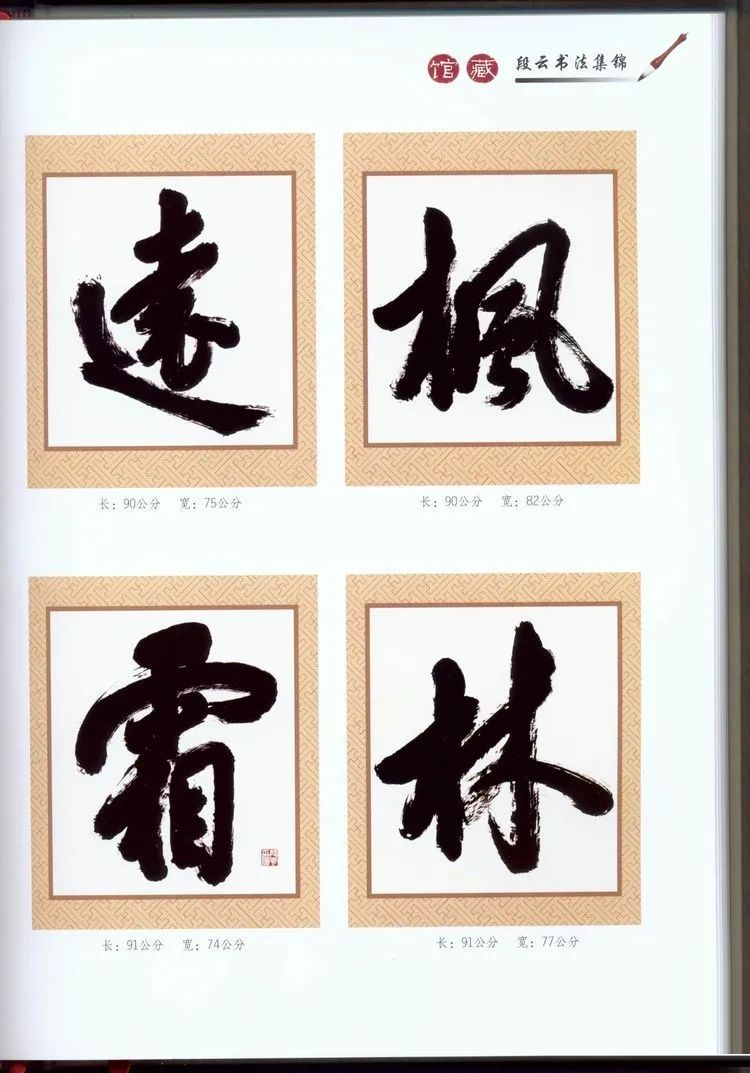 馆藏 段云书法集锦
枫
林
遠
霜
长：90公分 宽：82公分
长：91公分 宽：77公分
长：90公分 宽：75公分
长：91公分 宽：74公分